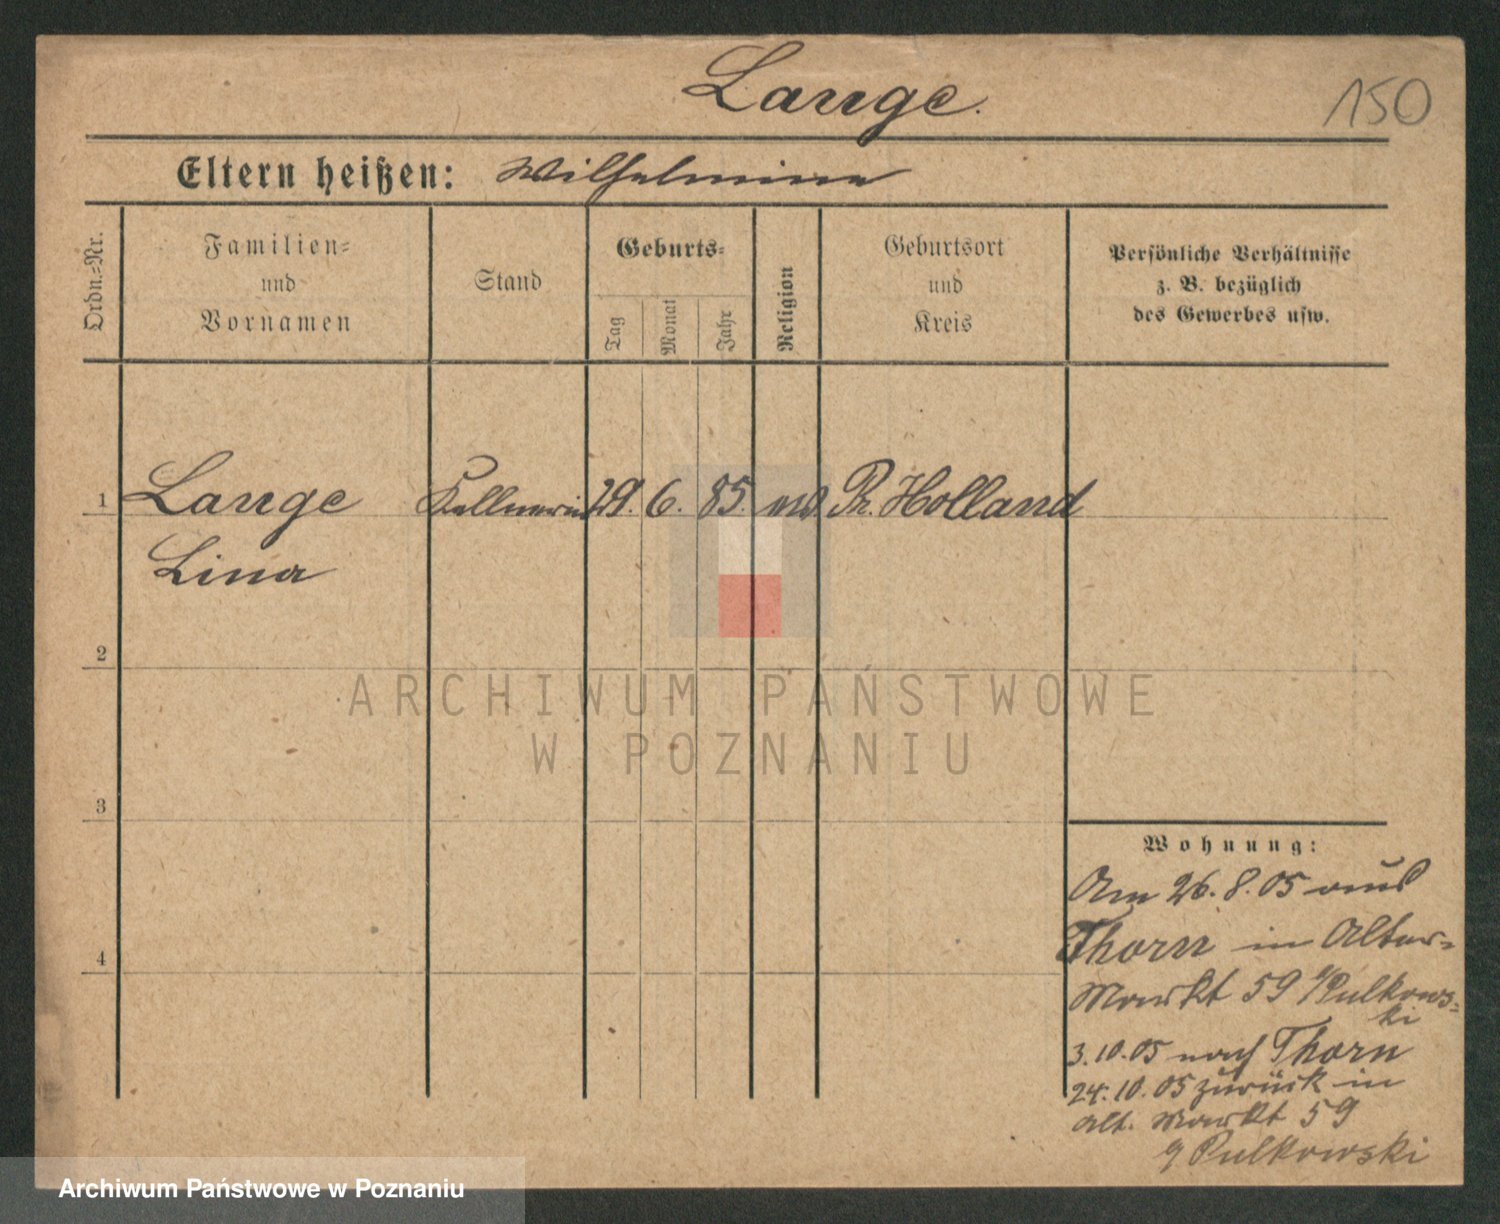 Lange.
150
Eltern heißen: Wilhelmine
Ordn.=Nr.
Familien=
und
Vornamen
Stand
Geburts=
Tag
Monat
Jahr
Religion
Geburtsort
und
Kreis
Persönliche Verhältnisse
z. B. bezüglich
des Gewerbes usw.
1 Lange Kellnerin 29. 6. 85. Pr. Holland
Lina
2
3
4
ARCHIWUM PAŃSTWOWE
W POZNANIU
Wohnung:
Am 26. 8. 05 aus
Thorn in Alter-
Markt 59 Pulkows-
ki
3. 10. 05 nach Thorn
24. 10. 05 zurück in
Alt. Markt 59
Pulkowski
Archiwum Państwowe w Poznaniu